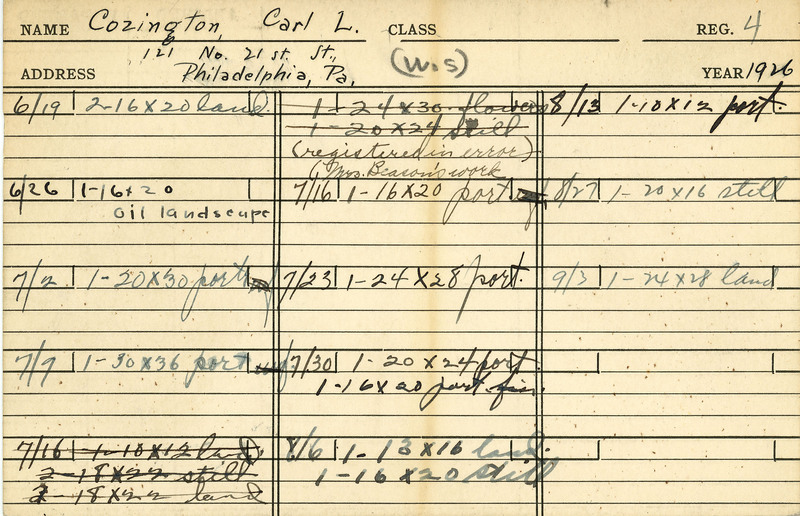 NAME Cozington, Carl L. CLASS REG. 4
121 No. 21st. St.,
ADDRESS Philadelphia, Pa. (W.S) YEAR 1926
6/19 2-16X20 land.
6/26 1-16x20
oil landscape
7/2 1-20X30 port
7/9 1-30X36 port
7/16 1-10X12 land
2-18X22 still
2-18X22 land
1-24X30 flowers
1-20X24 still
(registered in error)
(Mrs. Beason's work
7/16 1-16X20 port
7/23 1-24X28 port.
7/30 1-20X24 port.
1-16X20 port. fin.
8/6 1-13X16 land.
1-16X20 still
8/13 1-10X12 port.
8/27 1-20X16 still
9/3 1-24X28 land